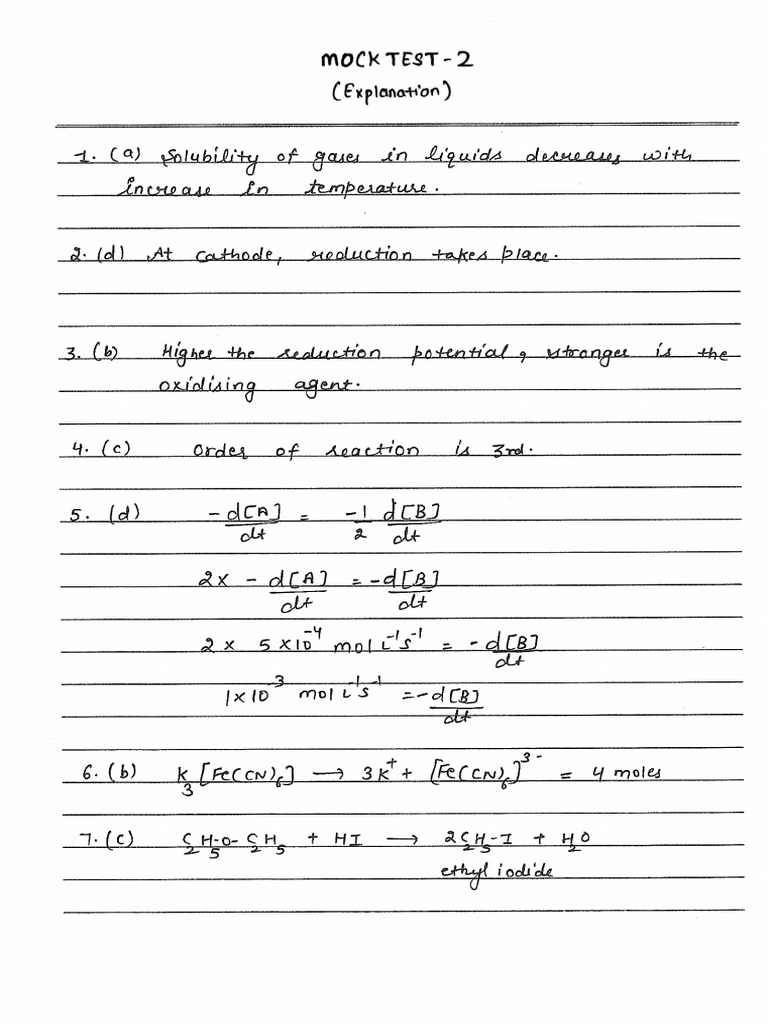 MOCK TEST - 2
(Explanation)
1. (a) Solubility of gases in liquids decreases with
increase in temperature.
2. (d) At cathode, reduction takes place.
3. (b) Higher the reduction potential, stronger is the
oxidising agent.
4. (c) Order of reaction is 3rd.
5. (d) -d[A]/dt = -1/2 d[B]/dt
2 x -d[A]/dt = -d[B]/dt
2 x 5 x 10⁻⁴ mol L⁻¹s⁻¹ = -d[B]/dt
1 x 10³ mol L⁻¹s⁻¹ = -d[B]/dt
6. (b) K₃[Fe(CN)₆] → 3K⁺ + [Fe(CN)₆]³⁻ = 4 moles
7. (c) C₂H₅-O-C₂H₅ + HI → 2C₂H₅-I + H₂O
ethyl iodide